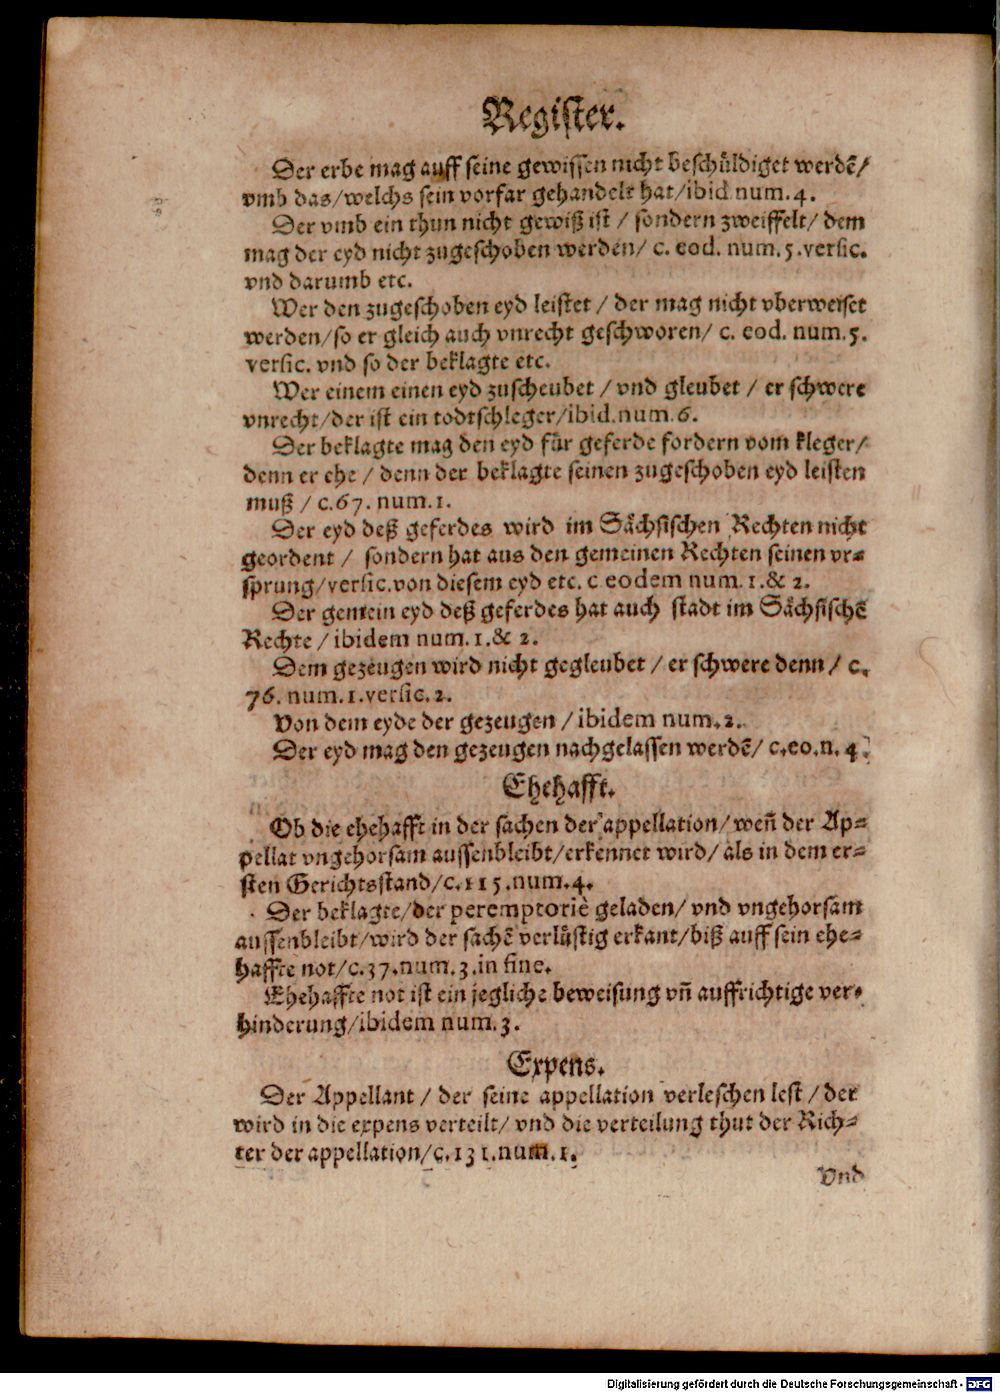 Register.
Der erbe mag auff seine gewissen nicht beschüldiget werdē/
vmb das/welchs sein vorfar gehandelt hat/ibid num.4.
Der vmb ein thun nicht gewiß ist / sondern zweiffelt/ dem
mag der eyd nicht zugeschoben werden/ c. eod. num.5.versic.
vnd darumb etc.
Wer den zugeschoben eyd leistet / der mag nicht vberweiset
werden/so er gleich auch vnrecht geschworen/ c. eod. num.5.
versic. vnd so der beklagte etc.
Wer einem einen eyd zuscheubet / vnd gleubet / er schwere
vnrecht/der ist ein todtschleger/ibid.num.6.
Der beklagte mag den eyd für geferde fordern vom kleger/
denn er ehe / denn der beklagte seinen zugeschoben eyd leisten
muß / c.67. num.1.
Der eyd deß geferdes wird im Sächsischen Rechten nicht
geordent / sondern hat aus den gemeinen Rechten seinen vr-
sprung/versic.von diesem eyd etc. c eodem num.1.& 2.
Der gemein eyd deß geferdes hat auch stadt im Sächsischē
Rechte / ibidem num.1.& 2.
Dem gezeugen wird nicht gegleubet / er schwere denn / c.
76. num.1.versic.2.
Von dem eyde der gezeugen / ibidem num.2.
Der eyd mag den gezeugen nachgelassen werdē/ c.eo.n. 4.
Ehehafft.
Ob die ehehafft in der sachen der appellation/weñ der Ap-
pellat vngehorsam aussenbleibt/erkennet wird/als in dem er-
sten Gerichtsstand/c.115.num.4.
Der beklagte/der peremptoriè geladen/ vnd vngehorsam
aussenbleibt/wird der sachē verlüstig erkant/biß auff sein ehe-
haffte not/c.37.num.3.in fine.
Ehehaffte not ist ein jegliche beweisung vñ auffrichtige ver-
hinderung/ibidem num.3.
Expens.
Der Appellant / der seine appellation verleschen lest / der
wird in die expens verteilt/ vnd die verteilung thut der Rich-
ter der appellation/c.131.num.1.
Vnd
Digitalisierung gefördert durch die Deutsche Forschungsgemeinschaft - DFG